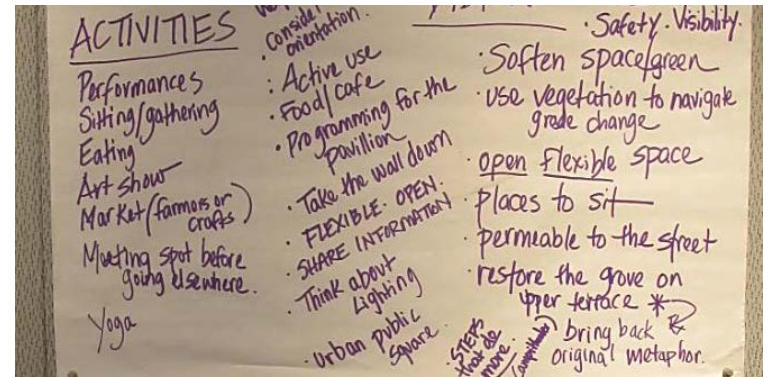 ACTIVITIES
Performances
Sitting/gathering
Eating
Art show
Market (farmors or
crafts)
Meeting spot before
going elsewhere.
Yoga
Consider
orientation.
: Active use
· Food/cafe
· Programming for the
pavillion
· Take the wall down
· FLEXIBLE. OPEN.
· SHARE INFORMATION
· Think about
Lighting
· Urban public
Square.
· STEPS
that do
more.
(amphitheater)
· Safety. Visibility.
· Soften space/green
· use vegetation to navigate
grade change
· open flexible space
· places to sit
· permeable to the street
· restore the grove on
upper terrace *
bring back
original metaphor.